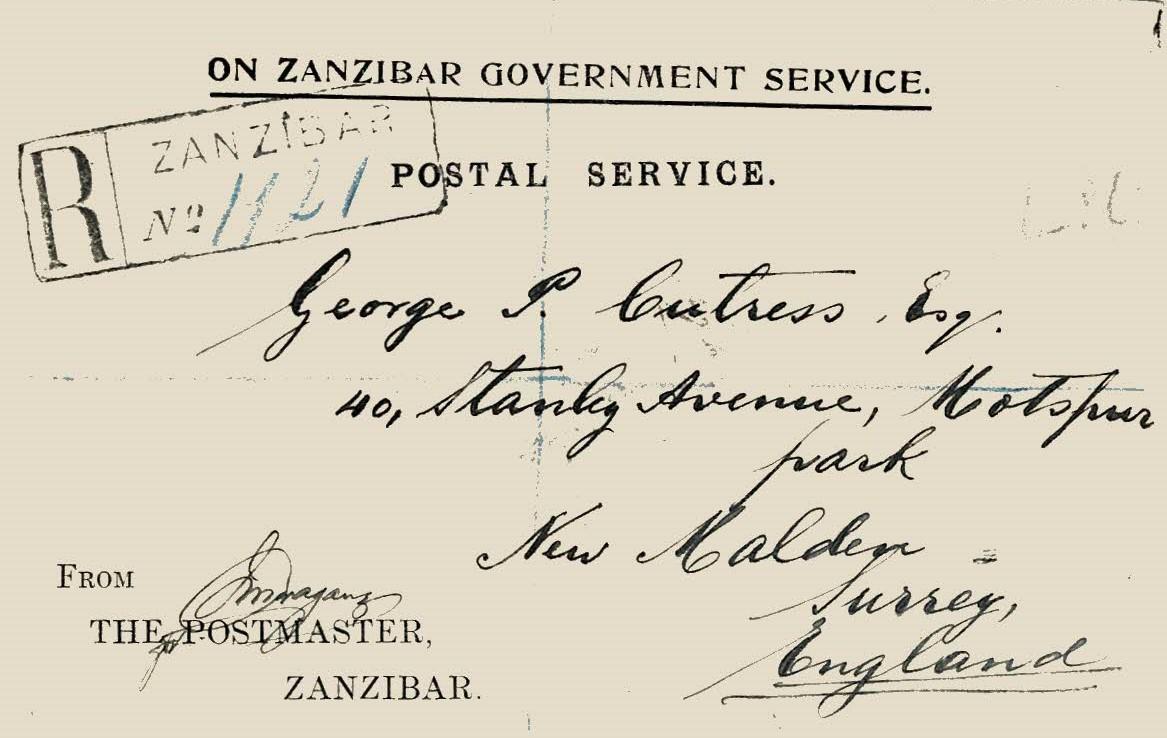 ON ZANZIBAR GOVERNMENT SERVICE.
R ZANZIBAR
Nº 1121
POSTAL SERVICE.
George P. Cutress, Esq.
40, Stanley Avenue, Motspur
park
New Malden
Surrey,
England
FROM
THE POSTMASTER,
ZANZIBAR.